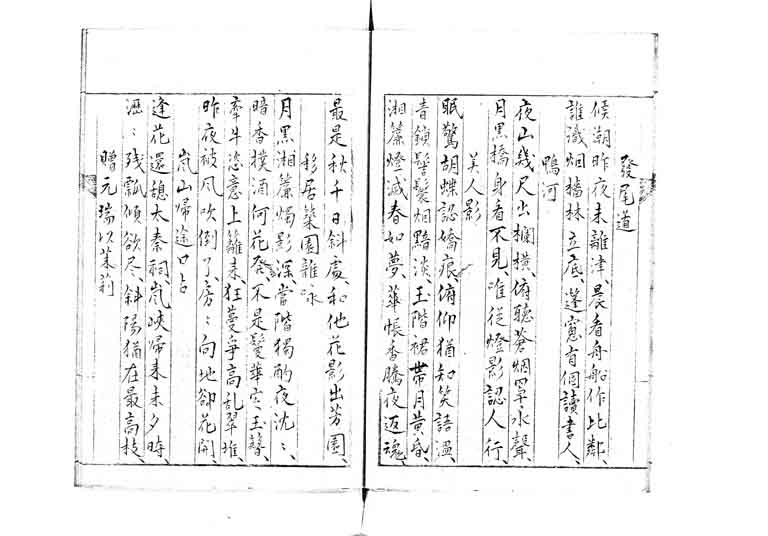 發尾道
候潮昨夜未離津、晨看舟船作比鄰、
誰識烟檣林立底、蓬窻有個讀書人、
鴨河
夜山幾尺出欄橫、俯聽蒼烟罩水聲、
月黑橋身看不見、唯從燈影認人行、
美人影
眠驚胡蝶認嬌痕、俯仰猶知笑語溫、
青鎖鬢鬟烟黯淡、玉階裙帶月黃昏、
湘簾燈滅春如夢、華帳香騰夜返魂、
最是秋千日斜處、和他花影出芳園、
移居築園雜咏
月黑湘簾燭影深、當階獨酌夜沈〻、
暗香撲酒何花發、不是鬘華定玉簪、
牽牛恣意上籬來、狂蔓爭高亂翠堆、
昨夜被風吹倒了、房〻向地卻花開、
嵐山歸途口占
逢花還憩太秦祠、嵐峽歸來未夕時、
瀝〻殘瓢傾欲尽、斜陽猶在最高枝、
贈元瑞以茉莉